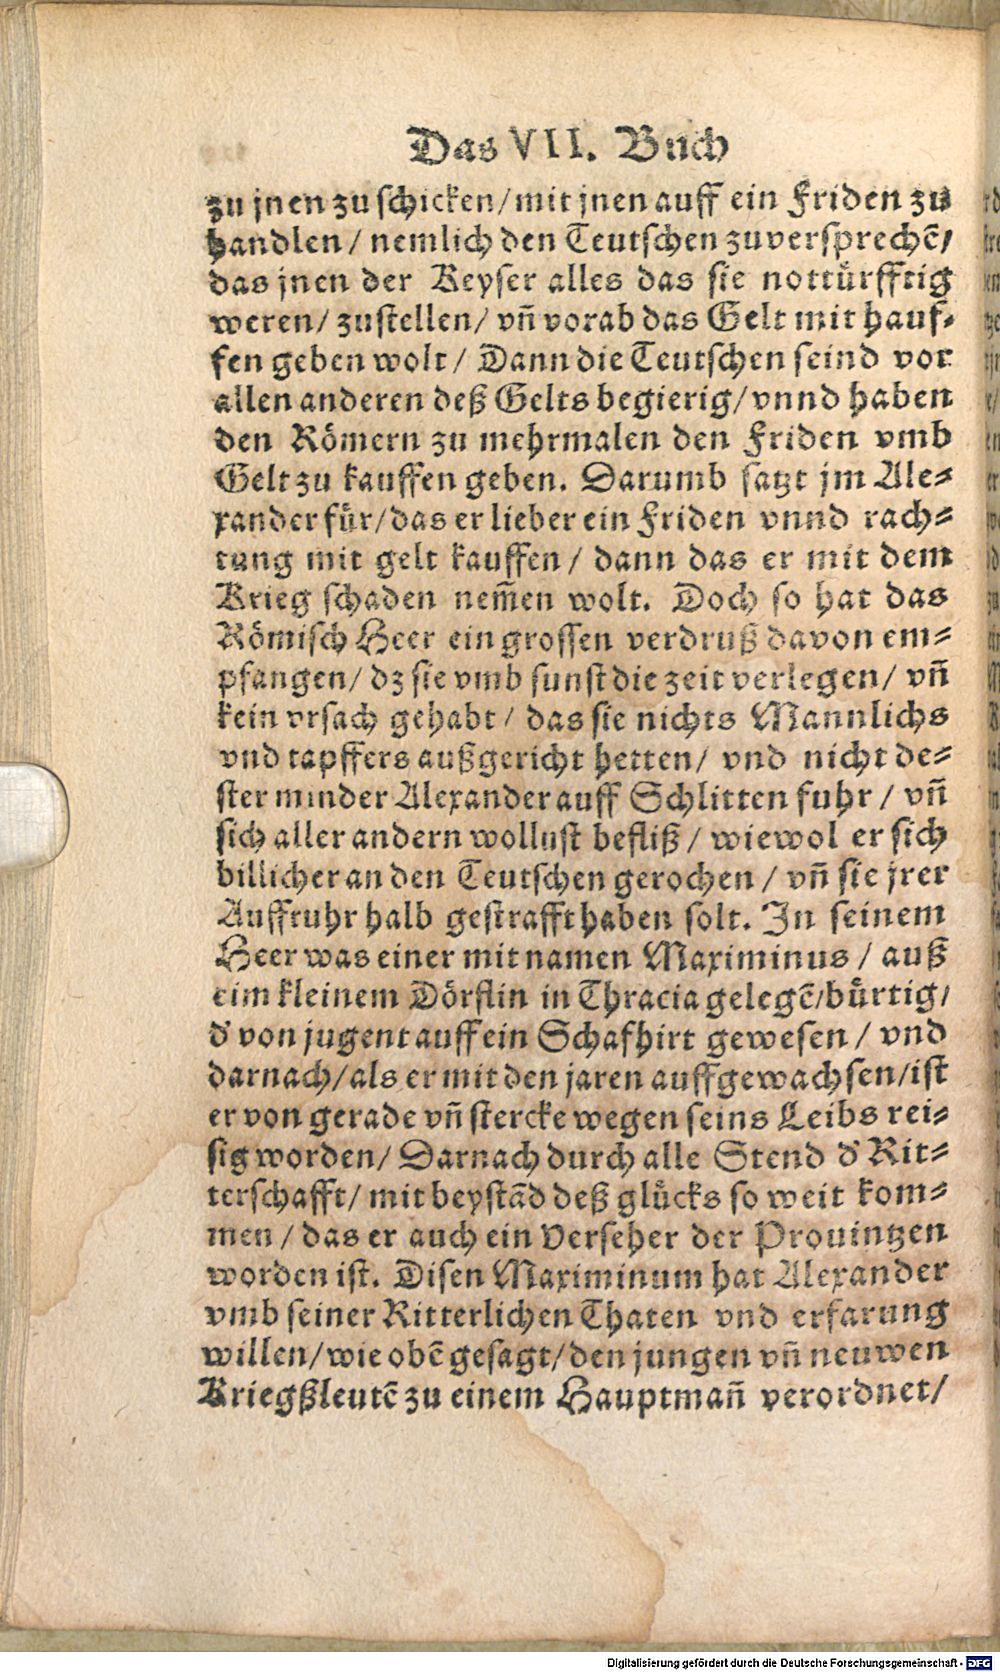 Das VII. Buch
zu jnen zu schicken/ mit jnen auff ein Friden zu
handlen/ nemlich den Teutschen zuversprechē/
das jnen der Keyser alles das sie nottürfftig
weren/ zustellen/ vñ vorab das Gelt mit hauf-
fen geben wolt/ Dann die Teutschen seind vor
allen anderen deß Gelts begierig/ vnnd haben
den Römern zu mehrmalen den Friden vmb
Gelt zu kauffen geben. Darumb satzt jm Ale-
xander für/ das er lieber ein Friden vnnd rach-
tung mit gelt kauffen/ dann das er mit dem
Krieg schaden nem̄en wolt. Doch so hat das
Römisch Heer ein grossen verdruß davon em-
pfangen/ dz sie vmb sunst die zeit verlegen/ vñ
kein vrsach gehabt/ das sie nichts Mannlichs
vnd tapffers außgericht hetten/ vnd nicht de-
ster minder Alexander auff Schlitten fuhr/ vñ
sich aller andern wollust befliß/ wiewol er sich
billicher an den Teutschen gerochen/ vñ sie jrer
Auffruhr halb gestrafft haben solt. In seinem
Heer was einer mit namen Maximinus/ auß
eim kleinem Dörflin in Thracia gelegē/ bürtig/
d' von jugent auff ein Schafhirt gewesen/ vnd
darnach/ als er mit den jaren auffgewachsen/ ist
er von gerade vñ stercke wegen seins Leibs rei-
sig worden/ Darnach durch alle Stend d' Rit-
terschafft/ mit beystād deß glücks so weit kom-
men/ das er auch ein Verseher der Prouintzen
worden ist. Disen Maximinum hat Alexander
vmb seiner Ritterlichen Thaten vnd erfarung
willen/ wie obē gesagt/ den jungen vñ neuwen
Kriegßleutē zu einem Hauptmañ verordnet/
Digitalisierung gefördert durch die Deutsche Forschungsgemeinschaft - DFG